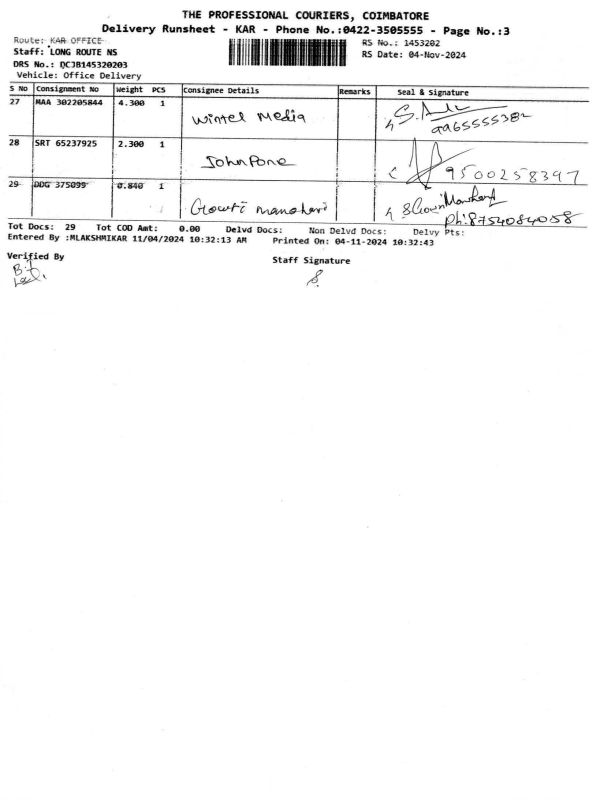 THE PROFESSIONAL COURIERS, COIMBATORE
Delivery Runsheet - KAR - Phone No.:0422-3505555 - Page No.:3
Route: KAR OFFICE
RS No.: 1453202
Staff: LONG ROUTE NS
RS Date: 04-Nov-2024
DRS No.: DCJB145320203
Vehicle: Office Delivery
S No Consignment No Weight PCS Consignee Details Remarks Seal & Signature
27 MAA 302205844 4.300 1 Wintel Media
9965555382
28 SRT 65237925 2.300 1 John Pone 9500258397
29 DDG 375099 0.840 1 Gowri manohari
Ph:8754084058
Tot Docs: 29 Tot COD Amt: 0.00 Delvd Docs: Non Delvd Docs: Delvy Pts:
Entered By :MLAKSHMIKAR 11/04/2024 10:32:13 AM Printed On: 04-11-2024 10:32:43
Verified By
Staff Signature